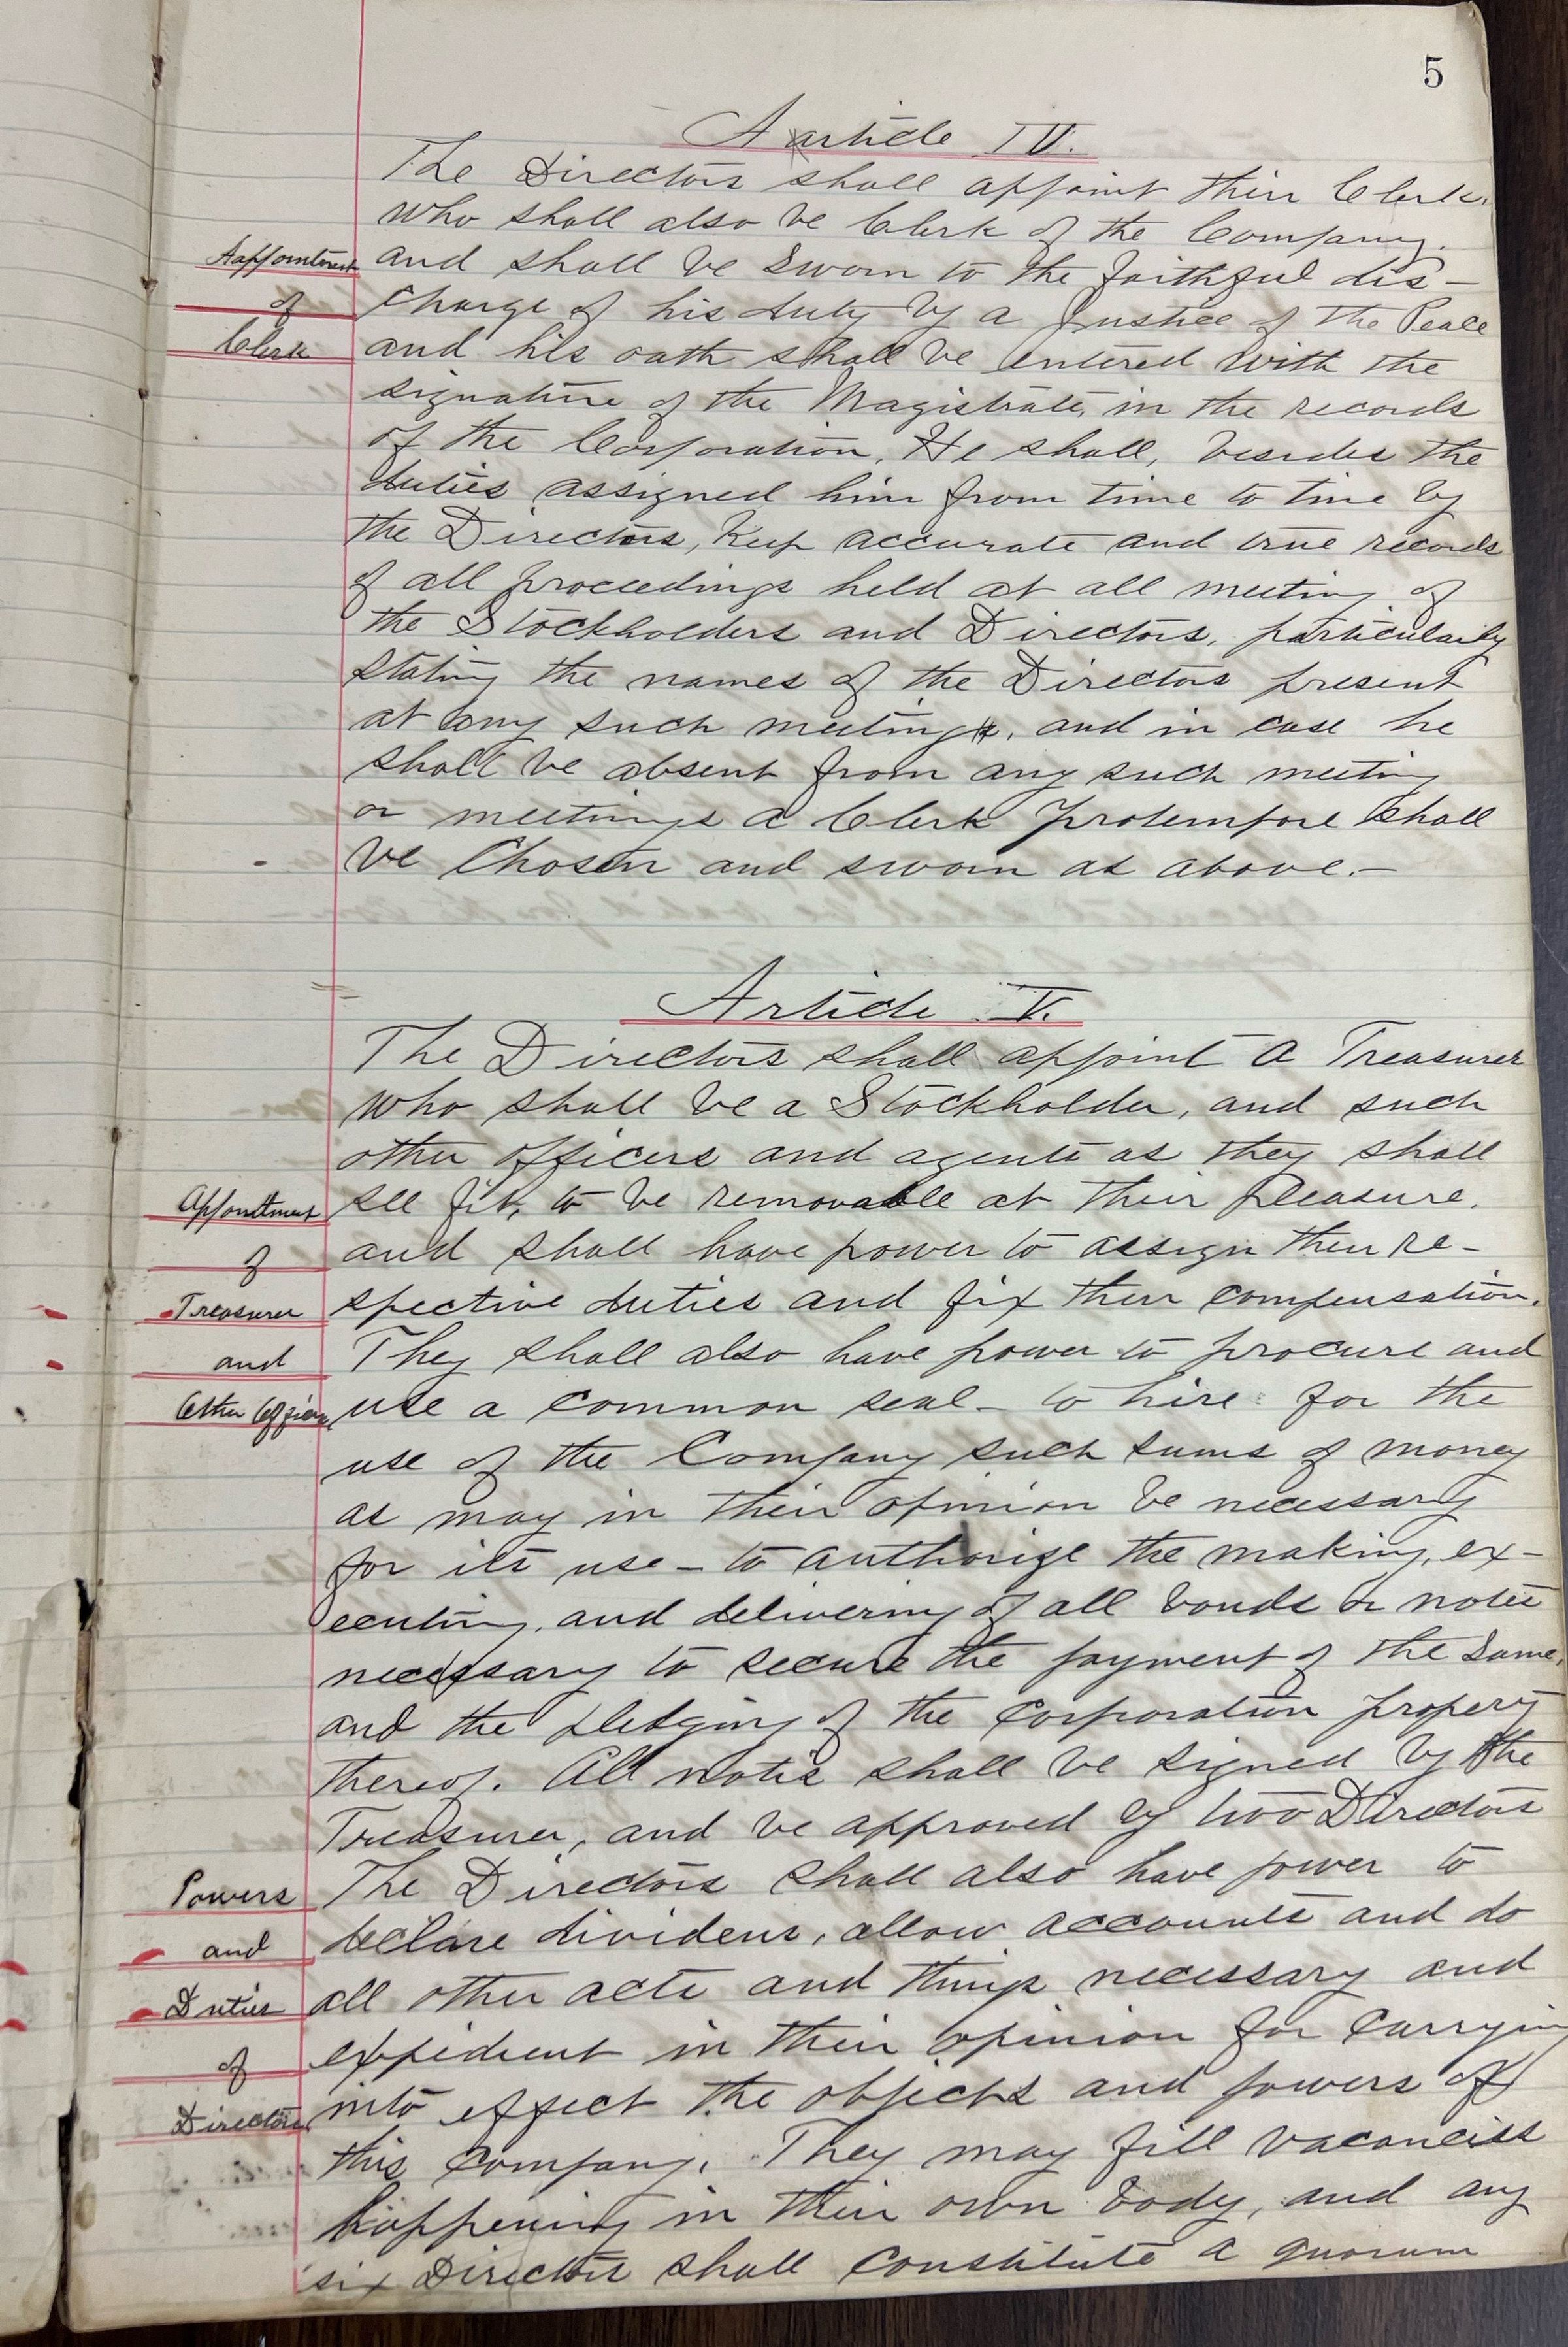 5
Aarticle IV.
The Directors shall appoint their Clerk,
who shall also be Clerk of the Company.
Appointment
of
Clerk
and shall be sworn to the faithful dis-
charge of his duty by a Justice of the Peace
and his oath shall be entered with the
signature of the Magistrate, in the records
of the Corporation. He shall, besides the
duties assigned him from time to time by
the Directors, keep accurate and true records
of all proceedings held at all meeting of
the Stockholders and Directors, particularly
stating the names of the Directors present
at any such meeting, and in case he
shall be absent from any such meeting
or meetings a Clerk protempore shall
be Chosen and sworn as above.-
Article V.
The Directors shall appoint a Treasurer
who shall be a Stockholder, and such
other officers and agents as they shall
Appointment
of
Treasurer
and
Other Officers
see fit, to be removable at their pleasure.
and shall have power to assign their re-
spective duties and fix their compensation.
They shall also have power to procure and
use a common seal - to hire for the
use of the Company such sums of money
as may in their opinion be necessary
for its use - to authorize the making, ex-
ecuting, and delivering of all bonds or notes
necessary to secure the payment of the same,
and the pledging of the Corporation property
thereof. All notes shall be signed by the
Treasurer, and be approved by two Directors
Powers
and
Duties
of
Directors
The Directors shall also have power to
declare dividens, allow accounts and do
all other acts and things necessary and
expedient in their opinion for carrying
into effect the objects and powers of
this company. They may fill vacancies
happening in their own body, and any
six Directors shall constitute a quorum